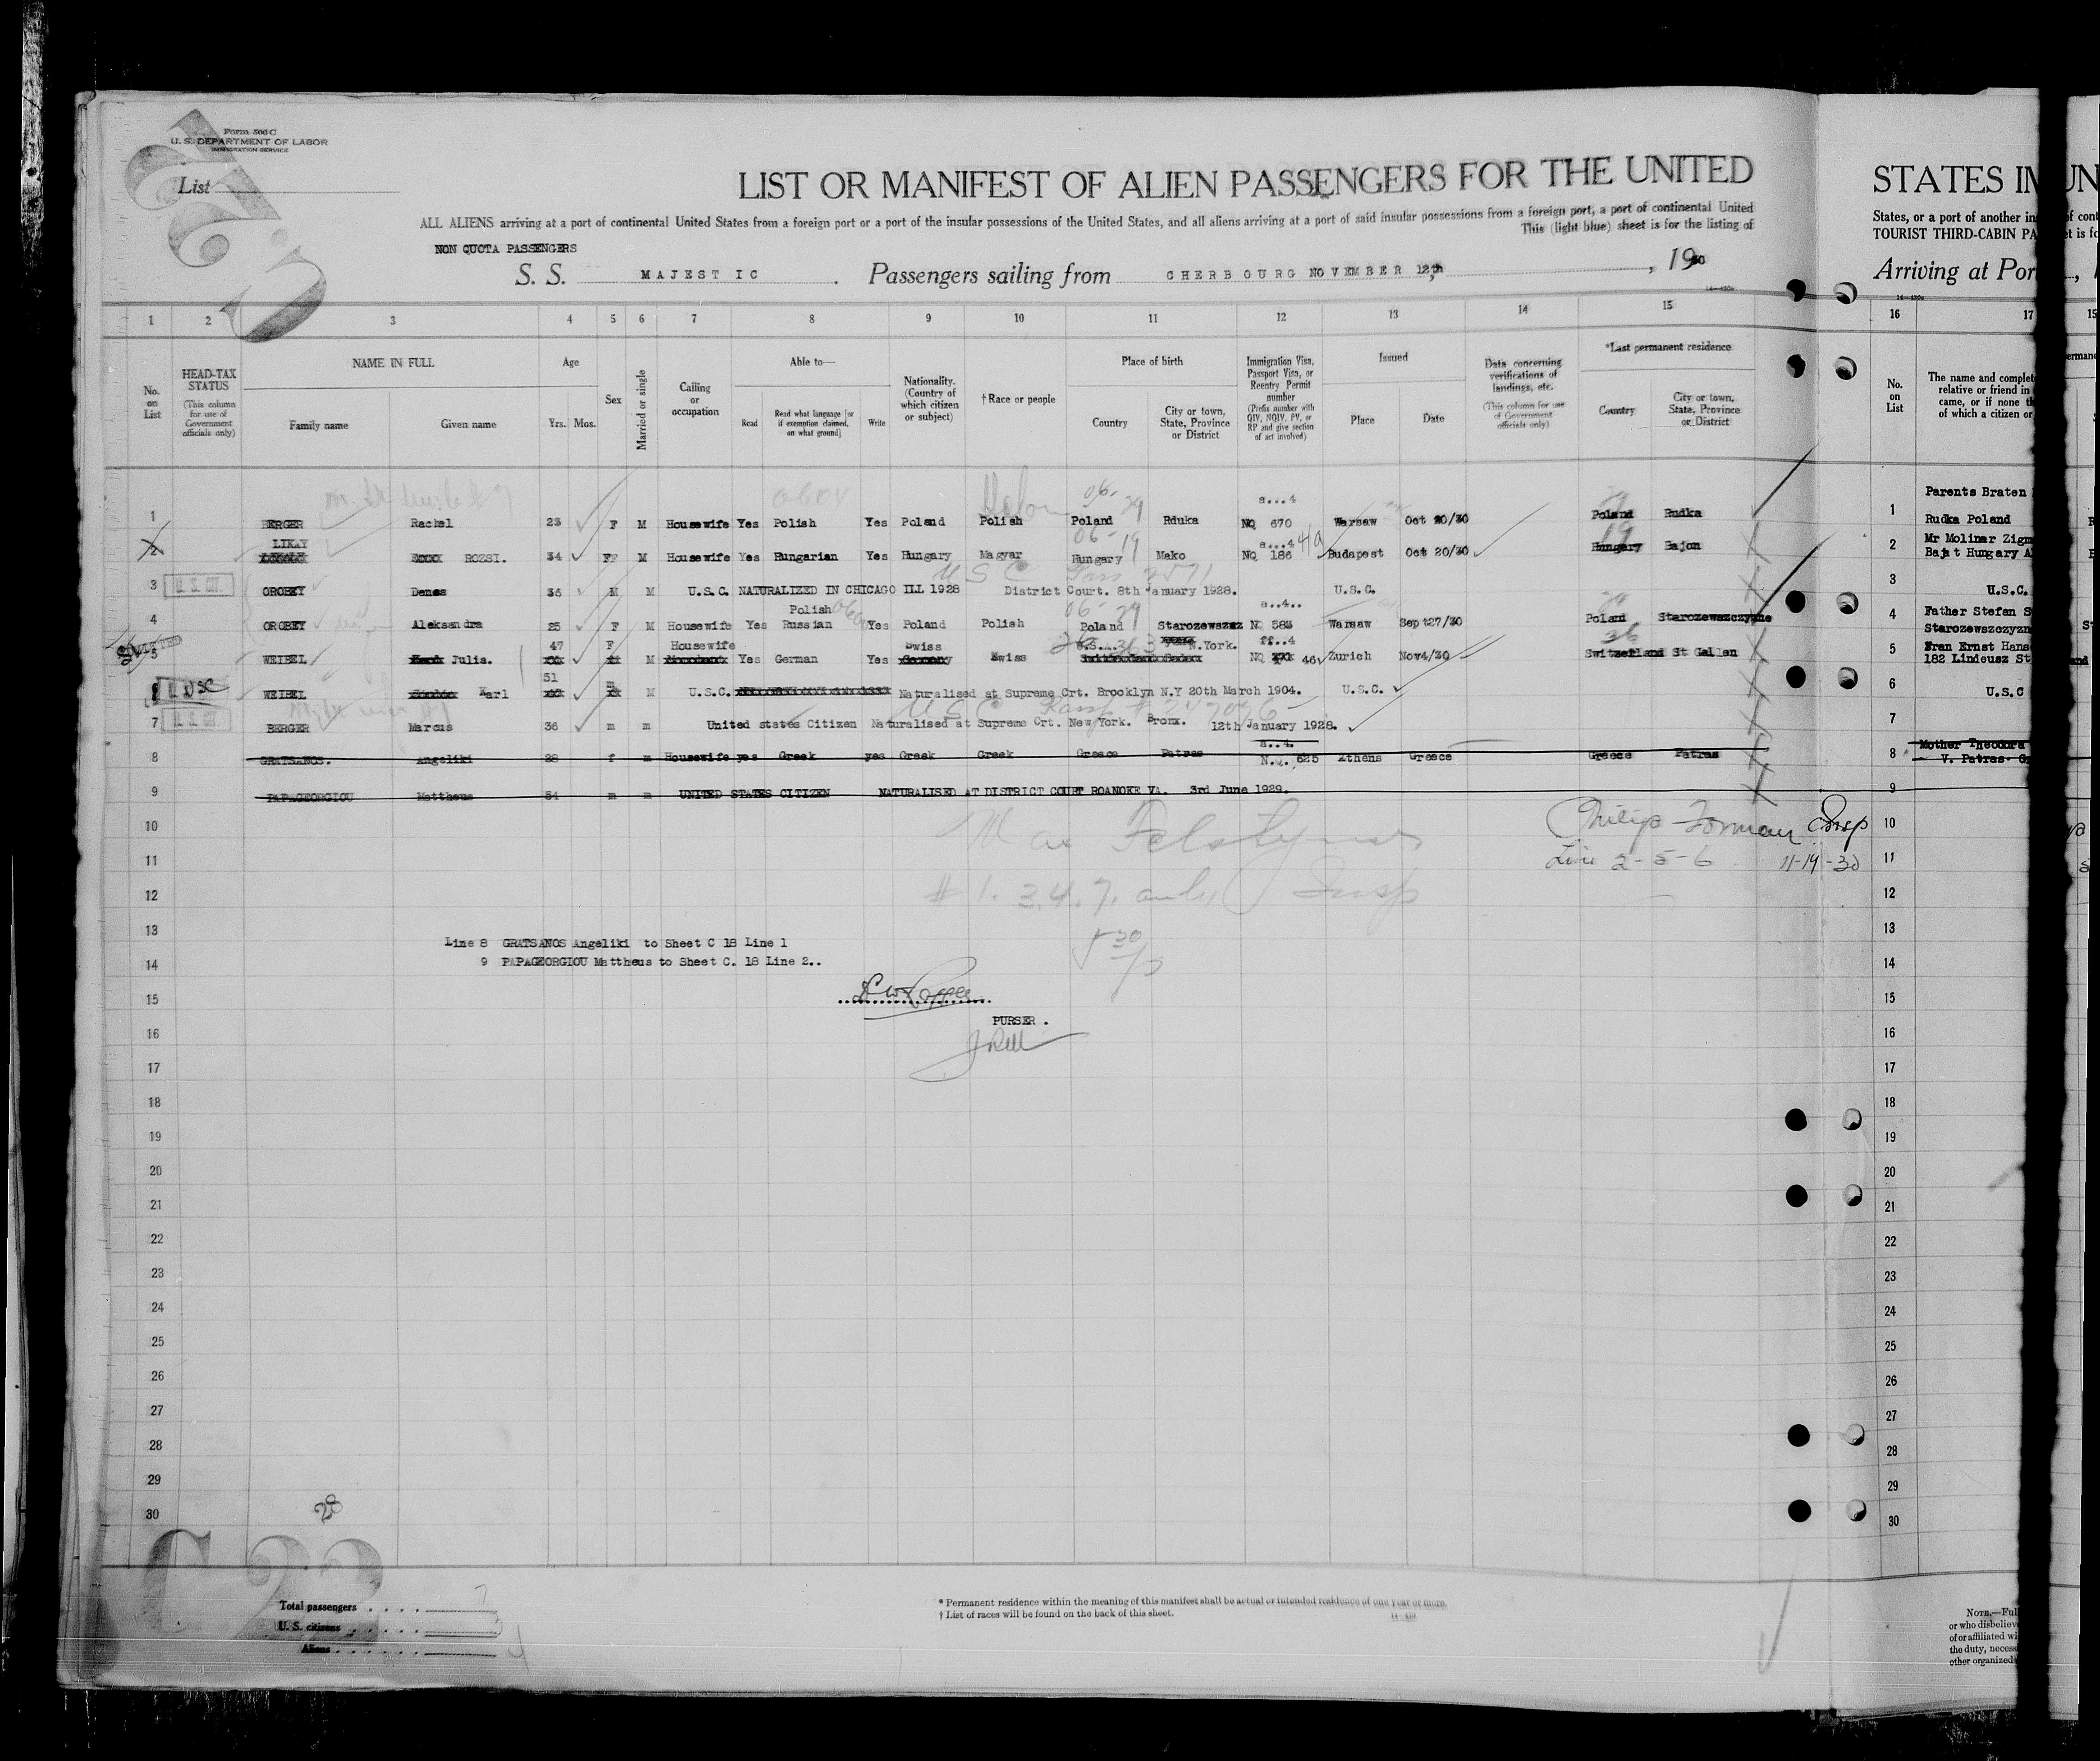 Form 500 C
U. S. DEPARTMENT OF LABOR
IMMIGRATION SERVICE
List
LIST OR MANIFEST OF ALIEN PASSENGERS FOR THE UNITED
ALL ALIENS arriving at a port of continental United States from a foreign port or a port of the insular possessions of the United States, and all aliens arriving at a port of said insular possessions from a foreign port, a port of continental United
This (light blue) sheet is for the listing of
NON QUOTA PASSENGERS
S. S. MAJESTIC. Passengers sailing from CHERBOURG NOVEMBER 12th, 1930
1 2 3 4 5 6 7 8 9 10 11 12 13 14 15
No. on List
HEAD-TAX STATUS (This column for use of Government officials only)
NAME IN FULL
Family name Given name
Age
Yrs. Mos.
Sex
Married or single
Calling or occupation
Able to—
Read Read what language [or if exemption claimed, on what ground] Write
Nationality. (Country of which citizen or subject)
†Race or people
Place of birth
Country City or town, State, Province or District
Immigration Visa, Passport Visa, or Reentry Permit number (Prefix number with QIV, NQIV, PV, or RP and give section of act involved)
Issued
Place Date
Data concerning verifications of landings, etc. (This column for use of Government officials only)
*Last permanent residence
Country City or town, State, Province or District
a...4
1 BERGER Rachel 23 F M Housewife Yes Polish Yes Poland Polish Poland Rduka NQ 670 Warsaw Oct 20/30 Poland Rudka
LIKAY a...4
2 ROZSI. 34 F M Housewife Yes Hungarian Yes Hungary Magyar Hungary Mako NQ 186 Budapest Oct 20/30 Hungary Bajon
3 OROBEY Denes 36 M M U.S.C. NATURALIZED IN CHICAGO ILL 1928 District Court. 8th January 1928. U.S.C.
Polish a..4..
4 OROBEY Aleksandra 25 F M Housewife Yes Russian Yes Poland Polish Poland Starozewszcz NQ 583 Warsaw Sept27/30 Poland Starozewszczyzne
47 F Housewife Swiss U.S.A. N.York. ff..4
5 WEIBEL Julia. M Yes German Yes Swiss NQ 46 Zurich Nov4/30 Switzerland St Gallen
51 m
6 WEIBEL Karl M U.S.C. Naturalised at Supreme Crt. Brooklyn N.Y 20th March 1904. U.S.C.
7 BERGER Marcus 36 m m United states Citizen Naturalised at Supreme Crt. New York. Bronx. 12th January 1928.
a..4.
8 GRATSANOS. Angeliki 28 f m Housewife yes Greek yes Greek Greek Greece Patras N.Q. 625 Athens Greece Greece Patras
9 PAPAGEORGIOU Mattheus 54 m m UNITED STATES CITIZEN NATURALISED AT DISTRICT COURT ROANOKE VA. 3rd June 1929.
10 Philip Forman Insp
11 Line 2-5-6 11-19-30
12 # 1. 3. 4. 7. only Insp
13 Line 8 GRATSANOS Angeliki to Sheet C 18 Line 1
14 9 PAPAGEORGIOU Mattheus to Sheet C. 18 Line 2..
15
PURSER.
16
17
18
19
20
21
22
23
24
25
26
27
28
29
30
28
C 22
Total passengers
U. S. citizens
Aliens
* Permanent residence within the meaning of this manifest shall be actual or intended residence of one year or more.
† List of races will be found on the back of this sheet.
STATES IN
States, or a port of another in
TOURIST THIRD-CABIN PA
Arriving at Por
16 17
No. on List
The name and complet
relative or friend in
came, or if none th
of which a citizen or
Parents Braten
1 Rudka Poland
2 Mr Molinar Zigm
Bajat Hungary A
3 U.S.C.
4 Father Stefan S
Starozewszczyzn
5 Fran Ernst Hans
182 Lindeusz St
6 U.S.C
7
8 Mother Theodora
V. Patras. G
9
10
11
12
13
14
15
16
17
18
19
20
21
22
23
24
25
26
27
28
29
30
NOTE.—Ful
or who disbeliev
of or affiliated wi
the duty, necess
other organized